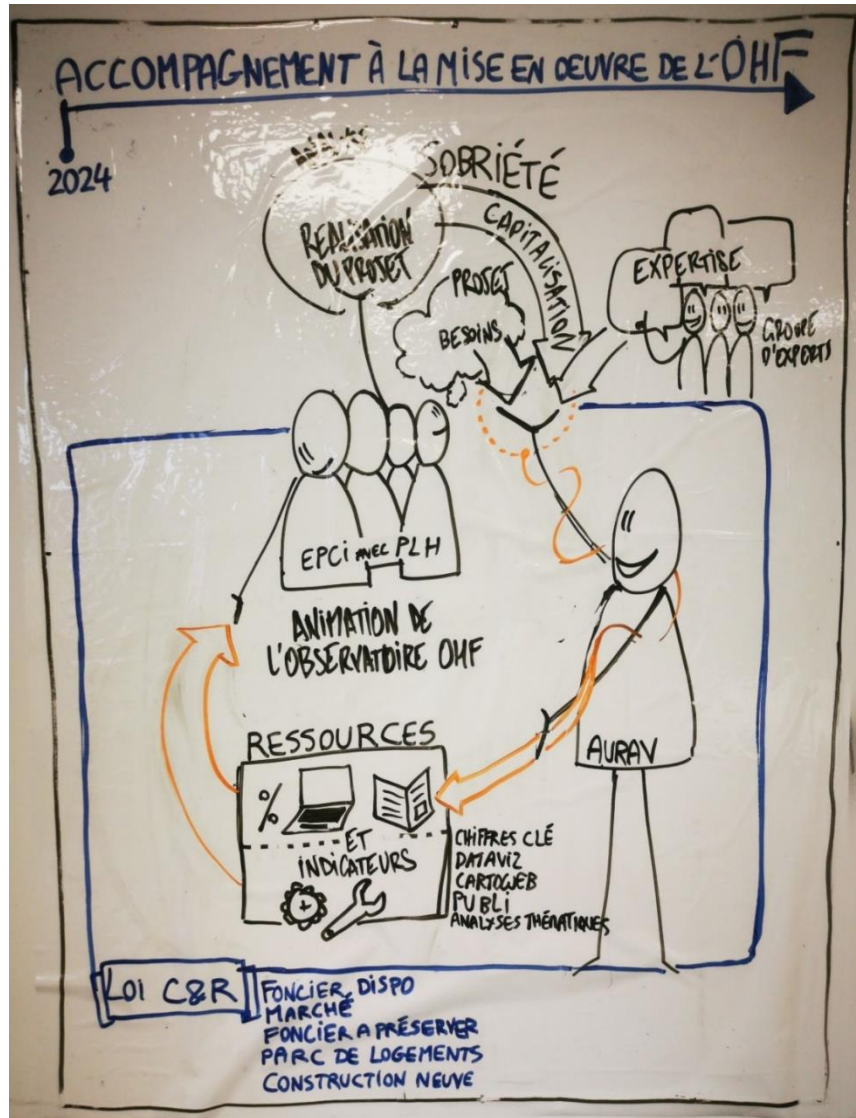 ACCOMPAGNEMENT À LA MISE EN OEUVRE DE L'OHF
2024
ANALYSE
SOBRIÉTÉ
CAPITALISATION
RÉALISATION
DU PROJET
PROJET
BESOINS
EXPERTISE
GROUPE
D'EXPERTS
EPCI AVEC PLH
ANIMATION DE
L'OBSERVATOIRE OHF
AURAV
RESSOURCES
%
ET
INDICATEURS
CHIFFRES CLÉ
DATAVIZ
CARTOWEB
PUBLI
ANALYSES THÉMATIQUES
LOI C&R
FONCIER DISPO
MARCHÉ
FONCIER A PRÉSERVER
PARC DE LOGEMENTS
CONSTRUCTION NEUVE